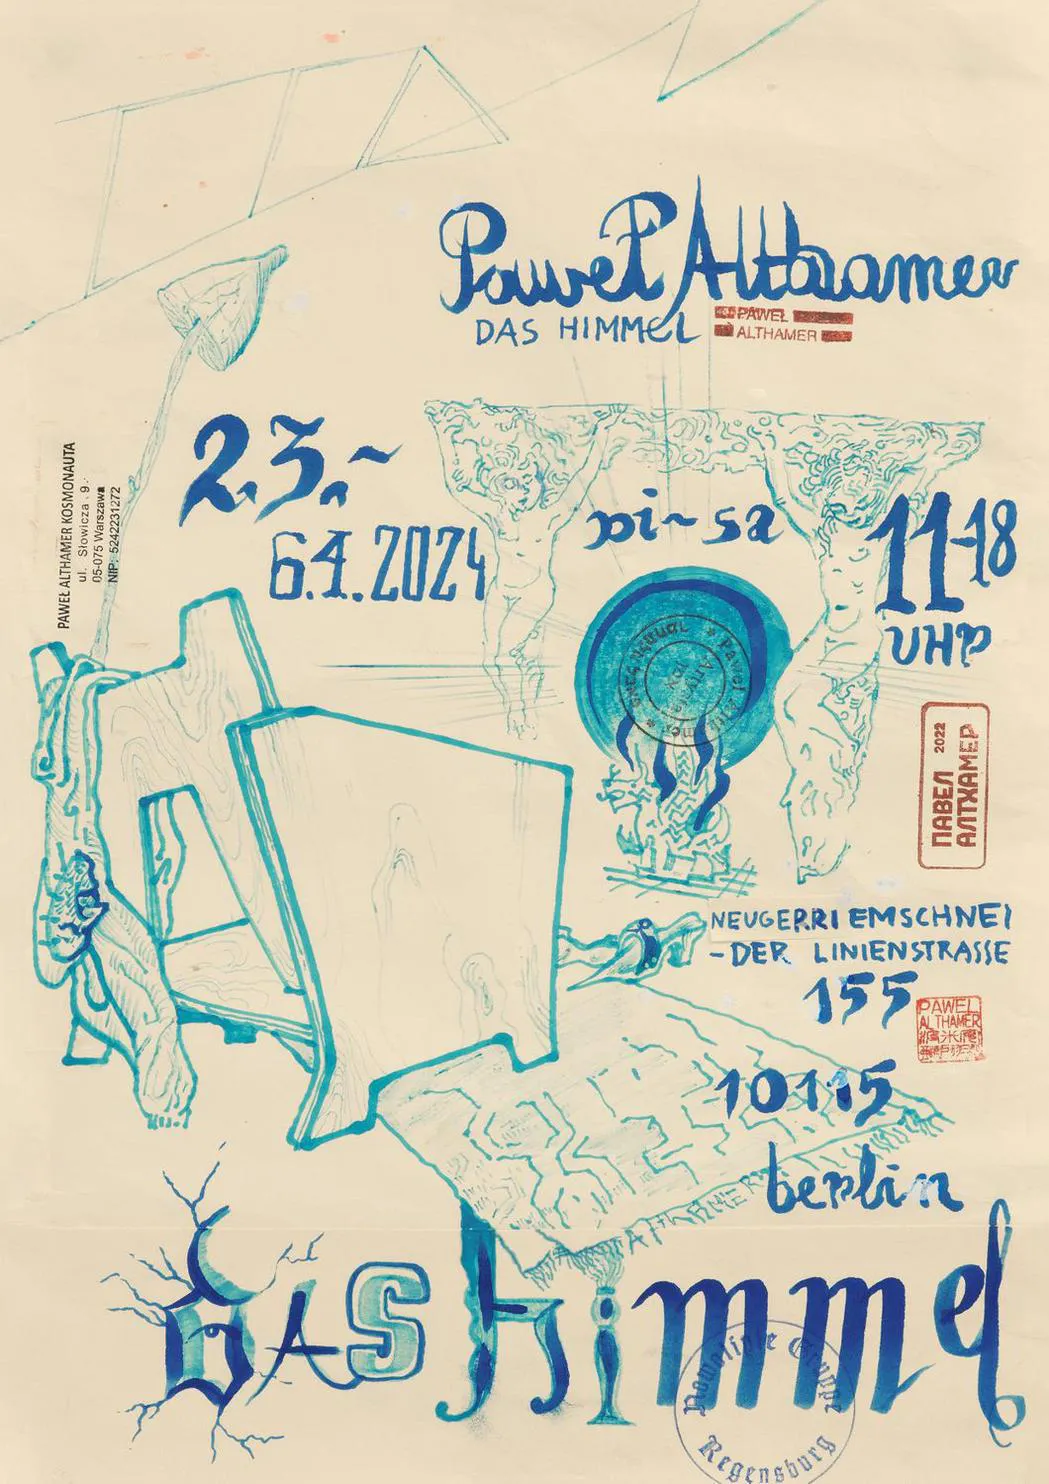 Paweł Althamer
DAS HIMMEL
PAWEŁ
ALTHAMER
2.3.~
6.4.2024
di~sa
11-18
UHR
PAWEŁ ALTHAMER KOSMONAUTA
ul. Słowicza 9
05-075 Warszawa
NIP: 5242231272
ПАВЕЛ 2022
АЛТХАМЕР
NEUGERRIEMSCHNEI
-DER LINIENSTRASSE
155
PAWEŁ
ALTHAMER
10115
berlin
ALTHAMER
Das Himmel
Nowolipie Gruppe
Regensburg